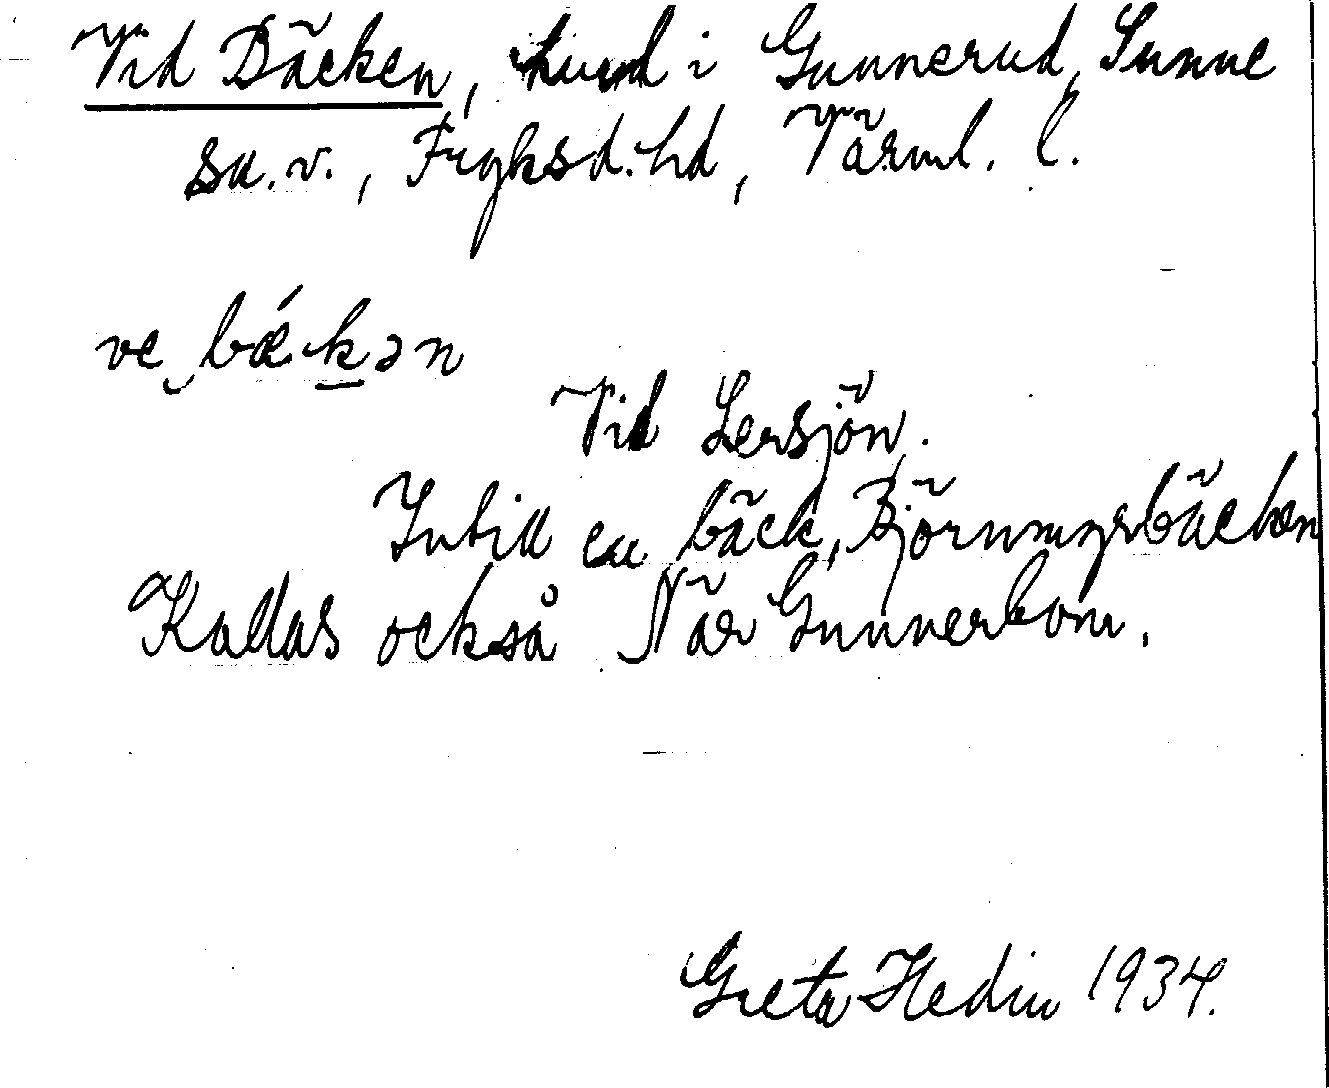 Vid Bäcken, hund i Gunnerud, Sunne
sn. v., Fryksd. hd, Värml. l.
ve bǽkən
Vid Lersjön.
Intill en bäck, Björnmyrsbäcken
Kallas också När Gunnerbom.
Greta Hedin 1934.